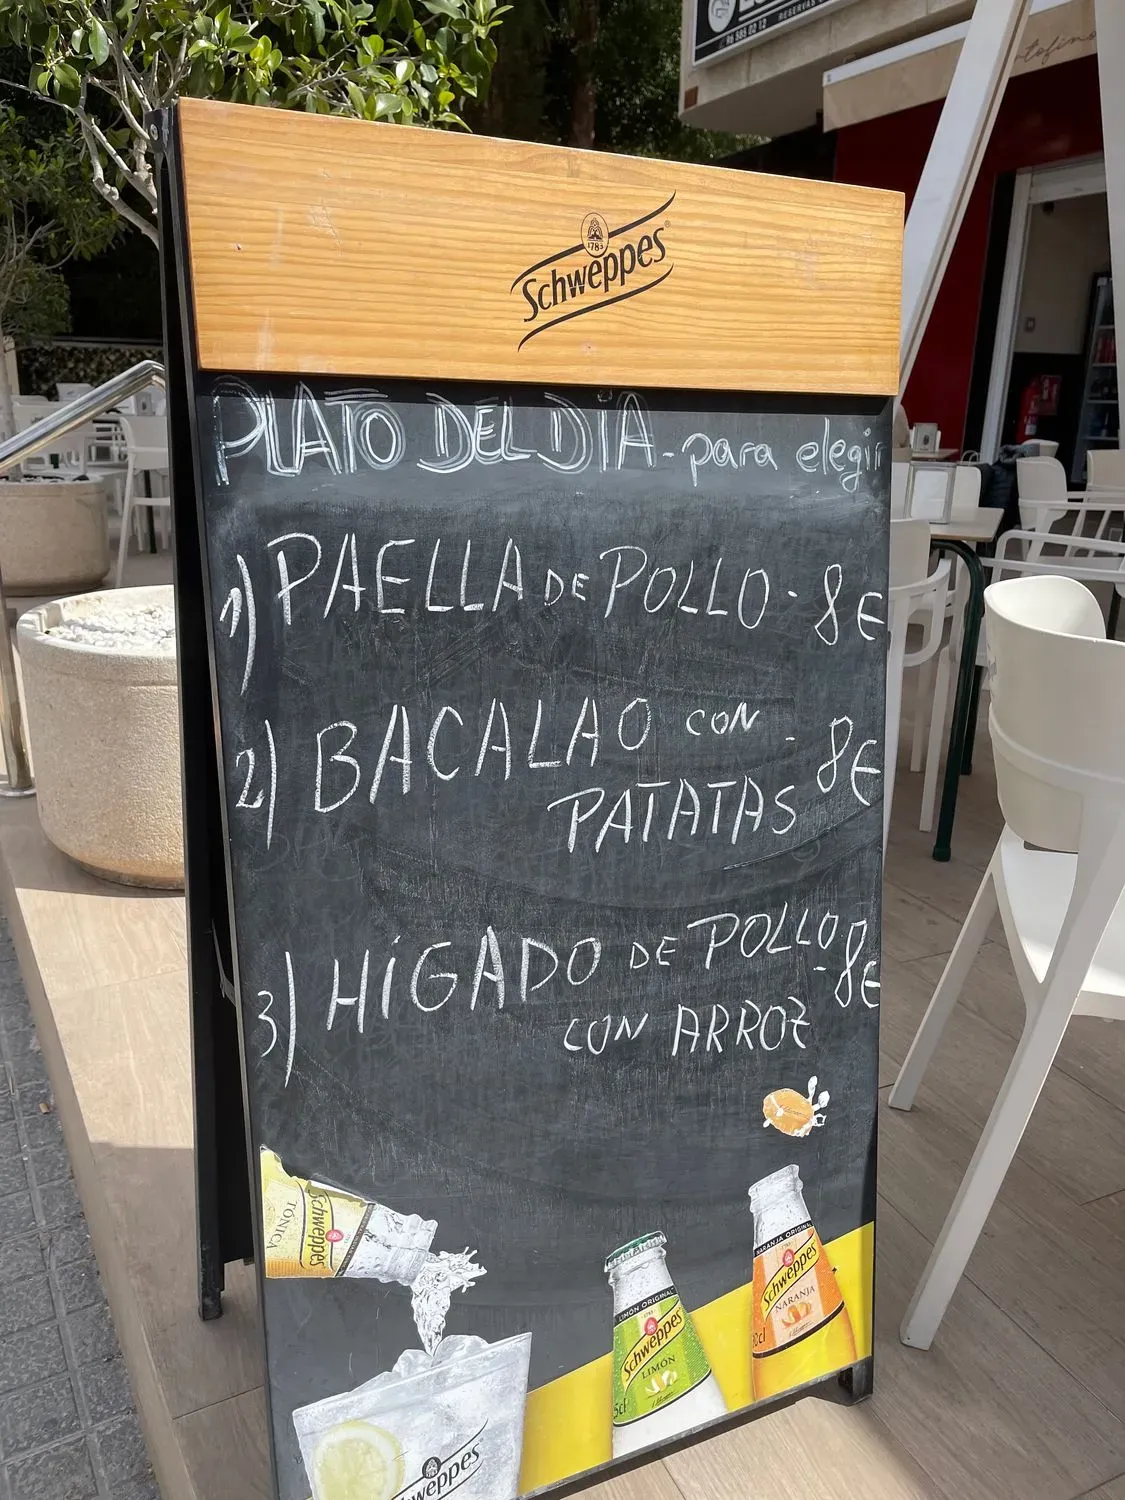 96 585 02 12 RESERVAS
tofino
1783
Schweppes
PLATO DEL DÍA - para elegir
1) PAELLA DE POLLO - 8€
2) BACALAO CON - 8€
PATATAS
3) HÍGADO DE POLLO - 8€
CON ARROZ
TONICA
Schweppes
LIMÓN ORIGINAL
Schweppes
LIMÓN
5cl
NARANJA ORIGINAL
Schweppes
NARANJA
0cl
Schweppes